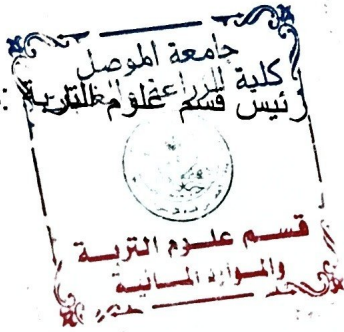 جامعة الموصل
كلية الزراعة والغابات
رئيس قسم علوم التربة :
قسم علوم التربة
والموارد المائية